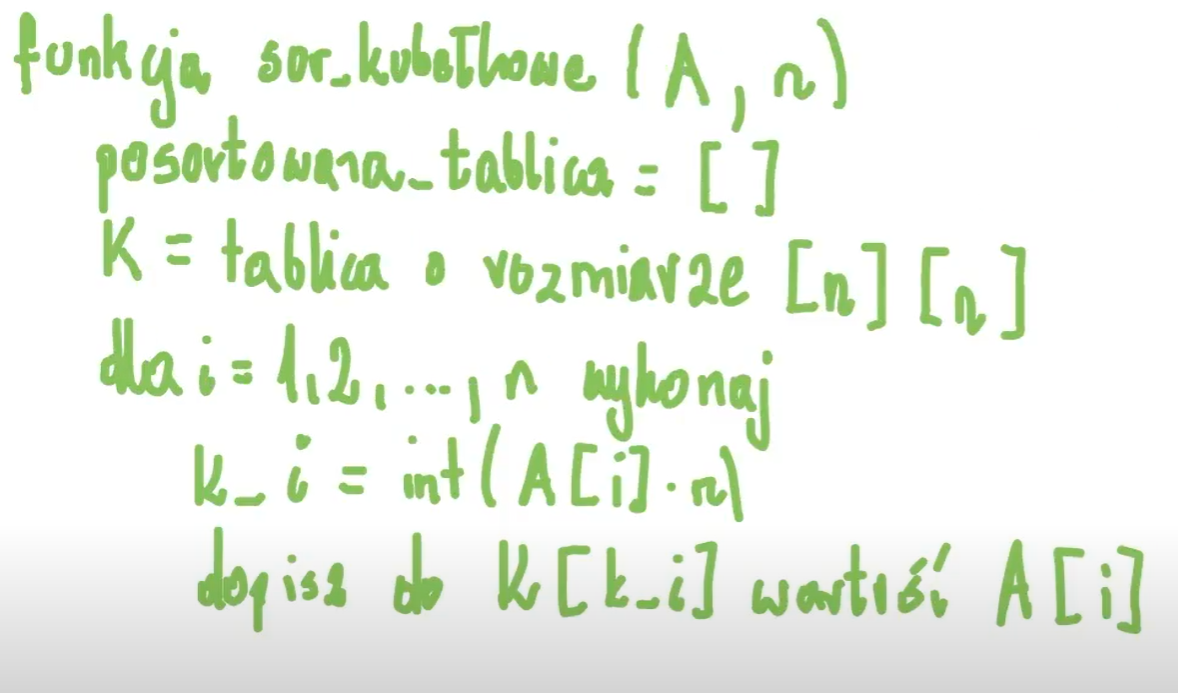 funkcja sor_kubełkowe (A, n)
posortowana_tablica = [ ]
K = tablica o rozmiarze [n] [n]
dla i = 1,2,...,n wykonaj
k_i = int(A[i]·n)
dopisz do K[k_i] wartość A[i]